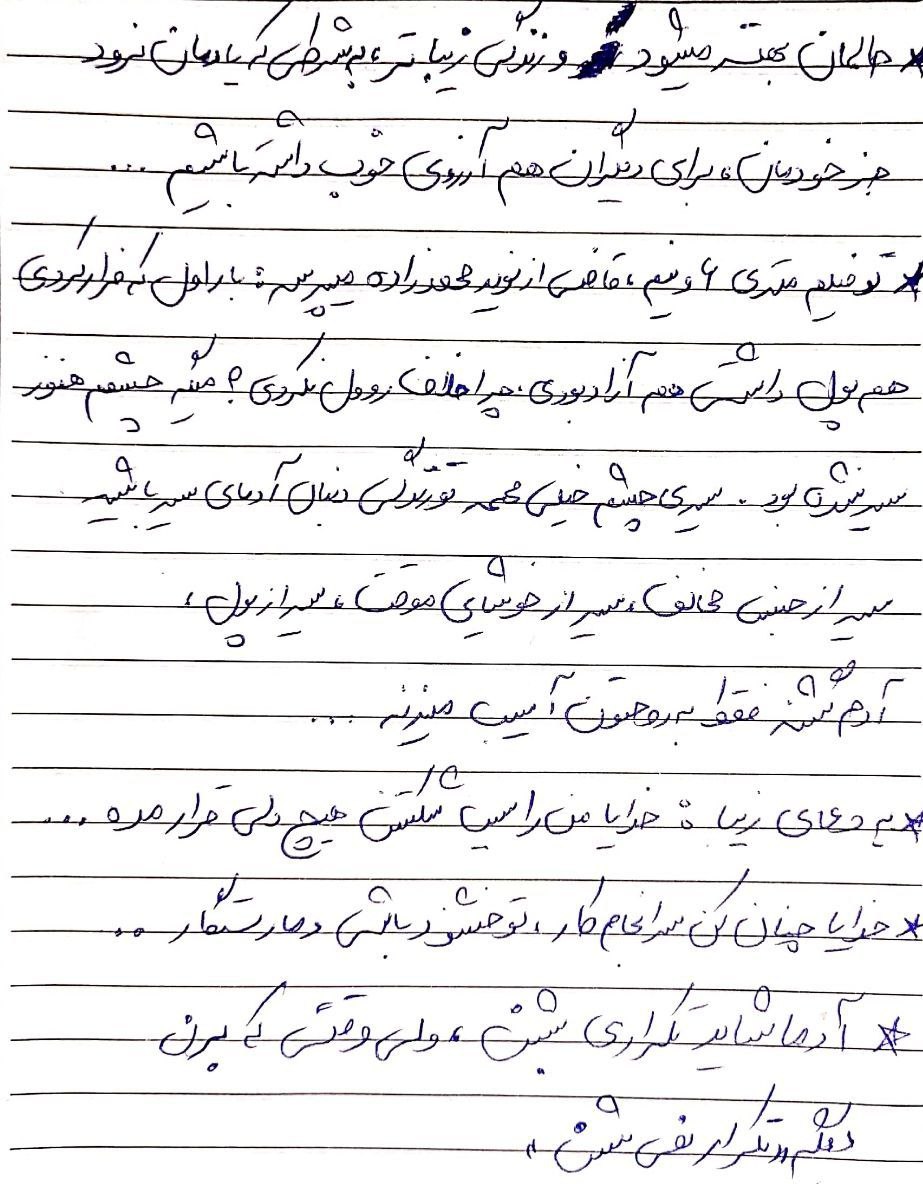 * حالمان بهتر میشود و زندگی زیباتر، به شرطی که یادمان نرود
جز خودمان، برای دیگران هم آرزوی خوب داشته باشیم ...
* تو فیلم متری ۶ و نیم، قاضی از نوید محمدزاده میپرسه: بار اول که فرار کردی
هم پول داشتی هم آزاد بودی، چرا خلاف رو ول نکردی؟ میگه چشمم هنوز
سیر نشده بود. سیری چشم خیلی مهمه تو زندگی دنبال آدمای سیر باشید
سیر از جنس مخالف، سیر از خوشیای موقت، سیر از پول،
آدم گشنه فقط به روحتون آسیب میزنه ...
* یه دعای زیبا: خدایا من را سبب شکستن هیچ دلی قرار مده ...
* خدایا چنان کن سرانجام کار، تو خشنود باشی و ما رستگار ..
* آدما شاید تکراری بشن، ولی وقتی که برن
دیگه "تکرار نمی شن"